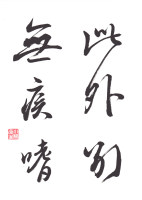 此外別
無疾嗜